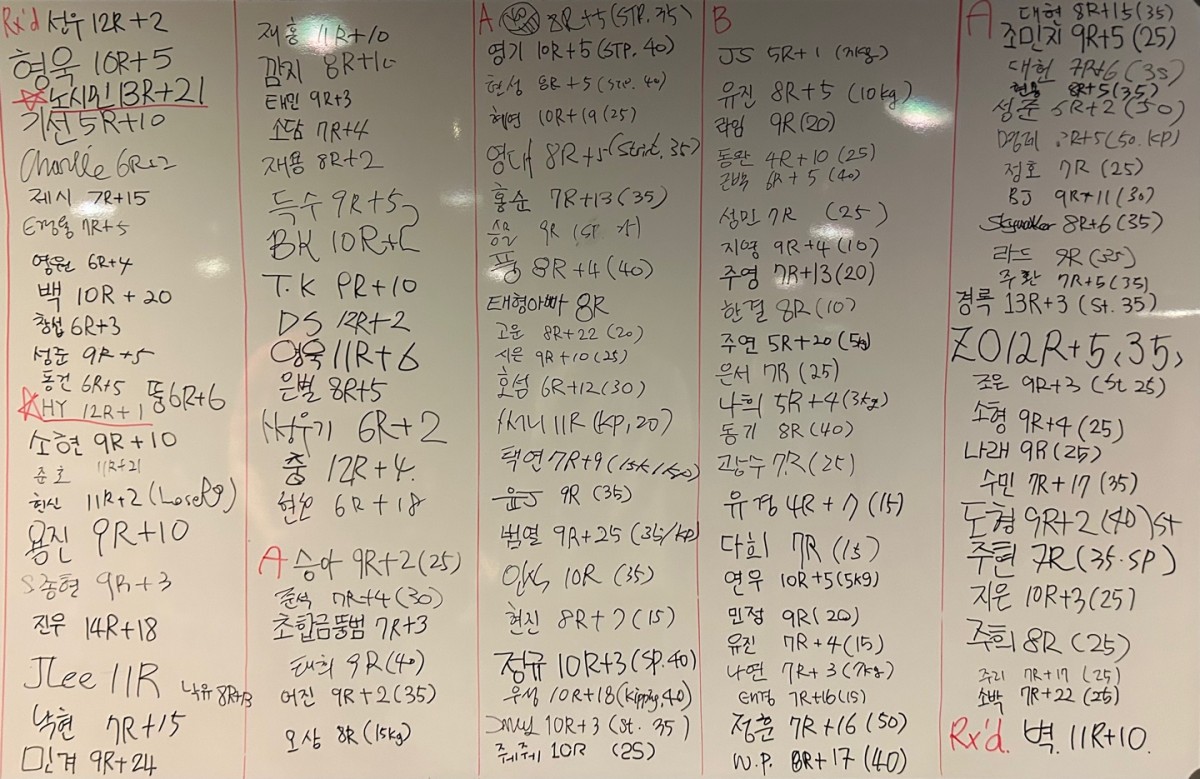 Rx'd 선우 12R+2
형욱 10R+5
노시민 13R+21
기선 5R+10
Charlie 6R+2
제시 7R+15
7R+5
영원 6R+4
백 10R+20
창섭 6R+3
성준 9R+5
동건 6R+5
뚱 6R+6
HY 12R+1
소현 9R+10
준호 11R+21
현신 11R+2
용진 9R+10
S종현 9R+3
진우 14R+18
JLee 11R
낙유 8R+13
낙현 7R+15
민겨 9R+24
재홍 11R+10
감지 8R+10
태민 9R+3
소담 7R+4
재용 8R+2
득수 9R+5
BK 10R+5
T.K 9R+10
DS 12R+2
영욱 11R+6
은별 8R+5
6R+2
충 12R+4
현호 6R+18
A 승아 9R+2 (25)
준석 7R+4 (30)
초합금뚱범 7R+3
태희 9R (40)
어진 9R+2 (35)
오상 8R (15kg)
A 8R+5 (STR.35)
영기 10R+5 (STP.40)
현성 8R+5 (STR.40)
혜연 10R+19 (25)
영대 8R+5 (Strict, 35)
홍순 7R+13 (35)
9R
풍 8R+4 (40)
태형아빠 8R
고운 8R+22 (20)
시은 9R+10 (25)
호섭 6R+12 (30)
써니 11R (KP, 20)
택연 7R+9
윤J 9R (35)
범열 9R+25 (35/KP)
인식 10R (35)
현진 8R+7 (15)
정규 10R+3 (SP.40)
우성 10R+18 (Kipping 40)
10R+3 (St. 35)
쥬쥬 10R (25)
B
JS 5R+1
유진 8R+5 (10kg)
라임 9R (20)
동완 4R+10 (25)
근백 6R+5 (40)
성민 7R (25)
지영 9R+4 (10)
주영 7R+13 (20)
한결 8R (10)
주연 5R+20 (5kg)
은서 7R (25)
나희 5R+4 (3kg)
동기 8R (40)
광수 7R (25)
유경 4R+7 (15)
다희 7R (15)
연우 10R+5 (5kg)
민정 9R (20)
유진 7R+4 (15)
나연 7R+3 (7kg)
태경 7R+16 (15)
정훈 7R+16 (50)
W.P. 8R+17 (40)
A 대현 8R+15 (35)
조민지 9R+5 (25)
대헌 7R+6 (35)
현용 8R+5 (35)
성준 5R+2 (50)
(50.KP)
점호 7R (25)
BJ 9R+11 (30)
Skywalker 8R+6 (35)
라드 9R (35)
주환 7R+5 (35)
경록 13R+3 (St. 35)
ZO 12R+5, 35,
조은 9R+3 (St 25)
소형 9R+4 (25)
나래 9R (25)
수민 7R+17 (35)
도형 9R+2 (40) St
주현 7R (35.SP)
지은 10R+3 (25)
주희 8R (25)
주리 7R+17 (25)
소박 7R+22 (25)
Rx'd. 벽. 11R+10.